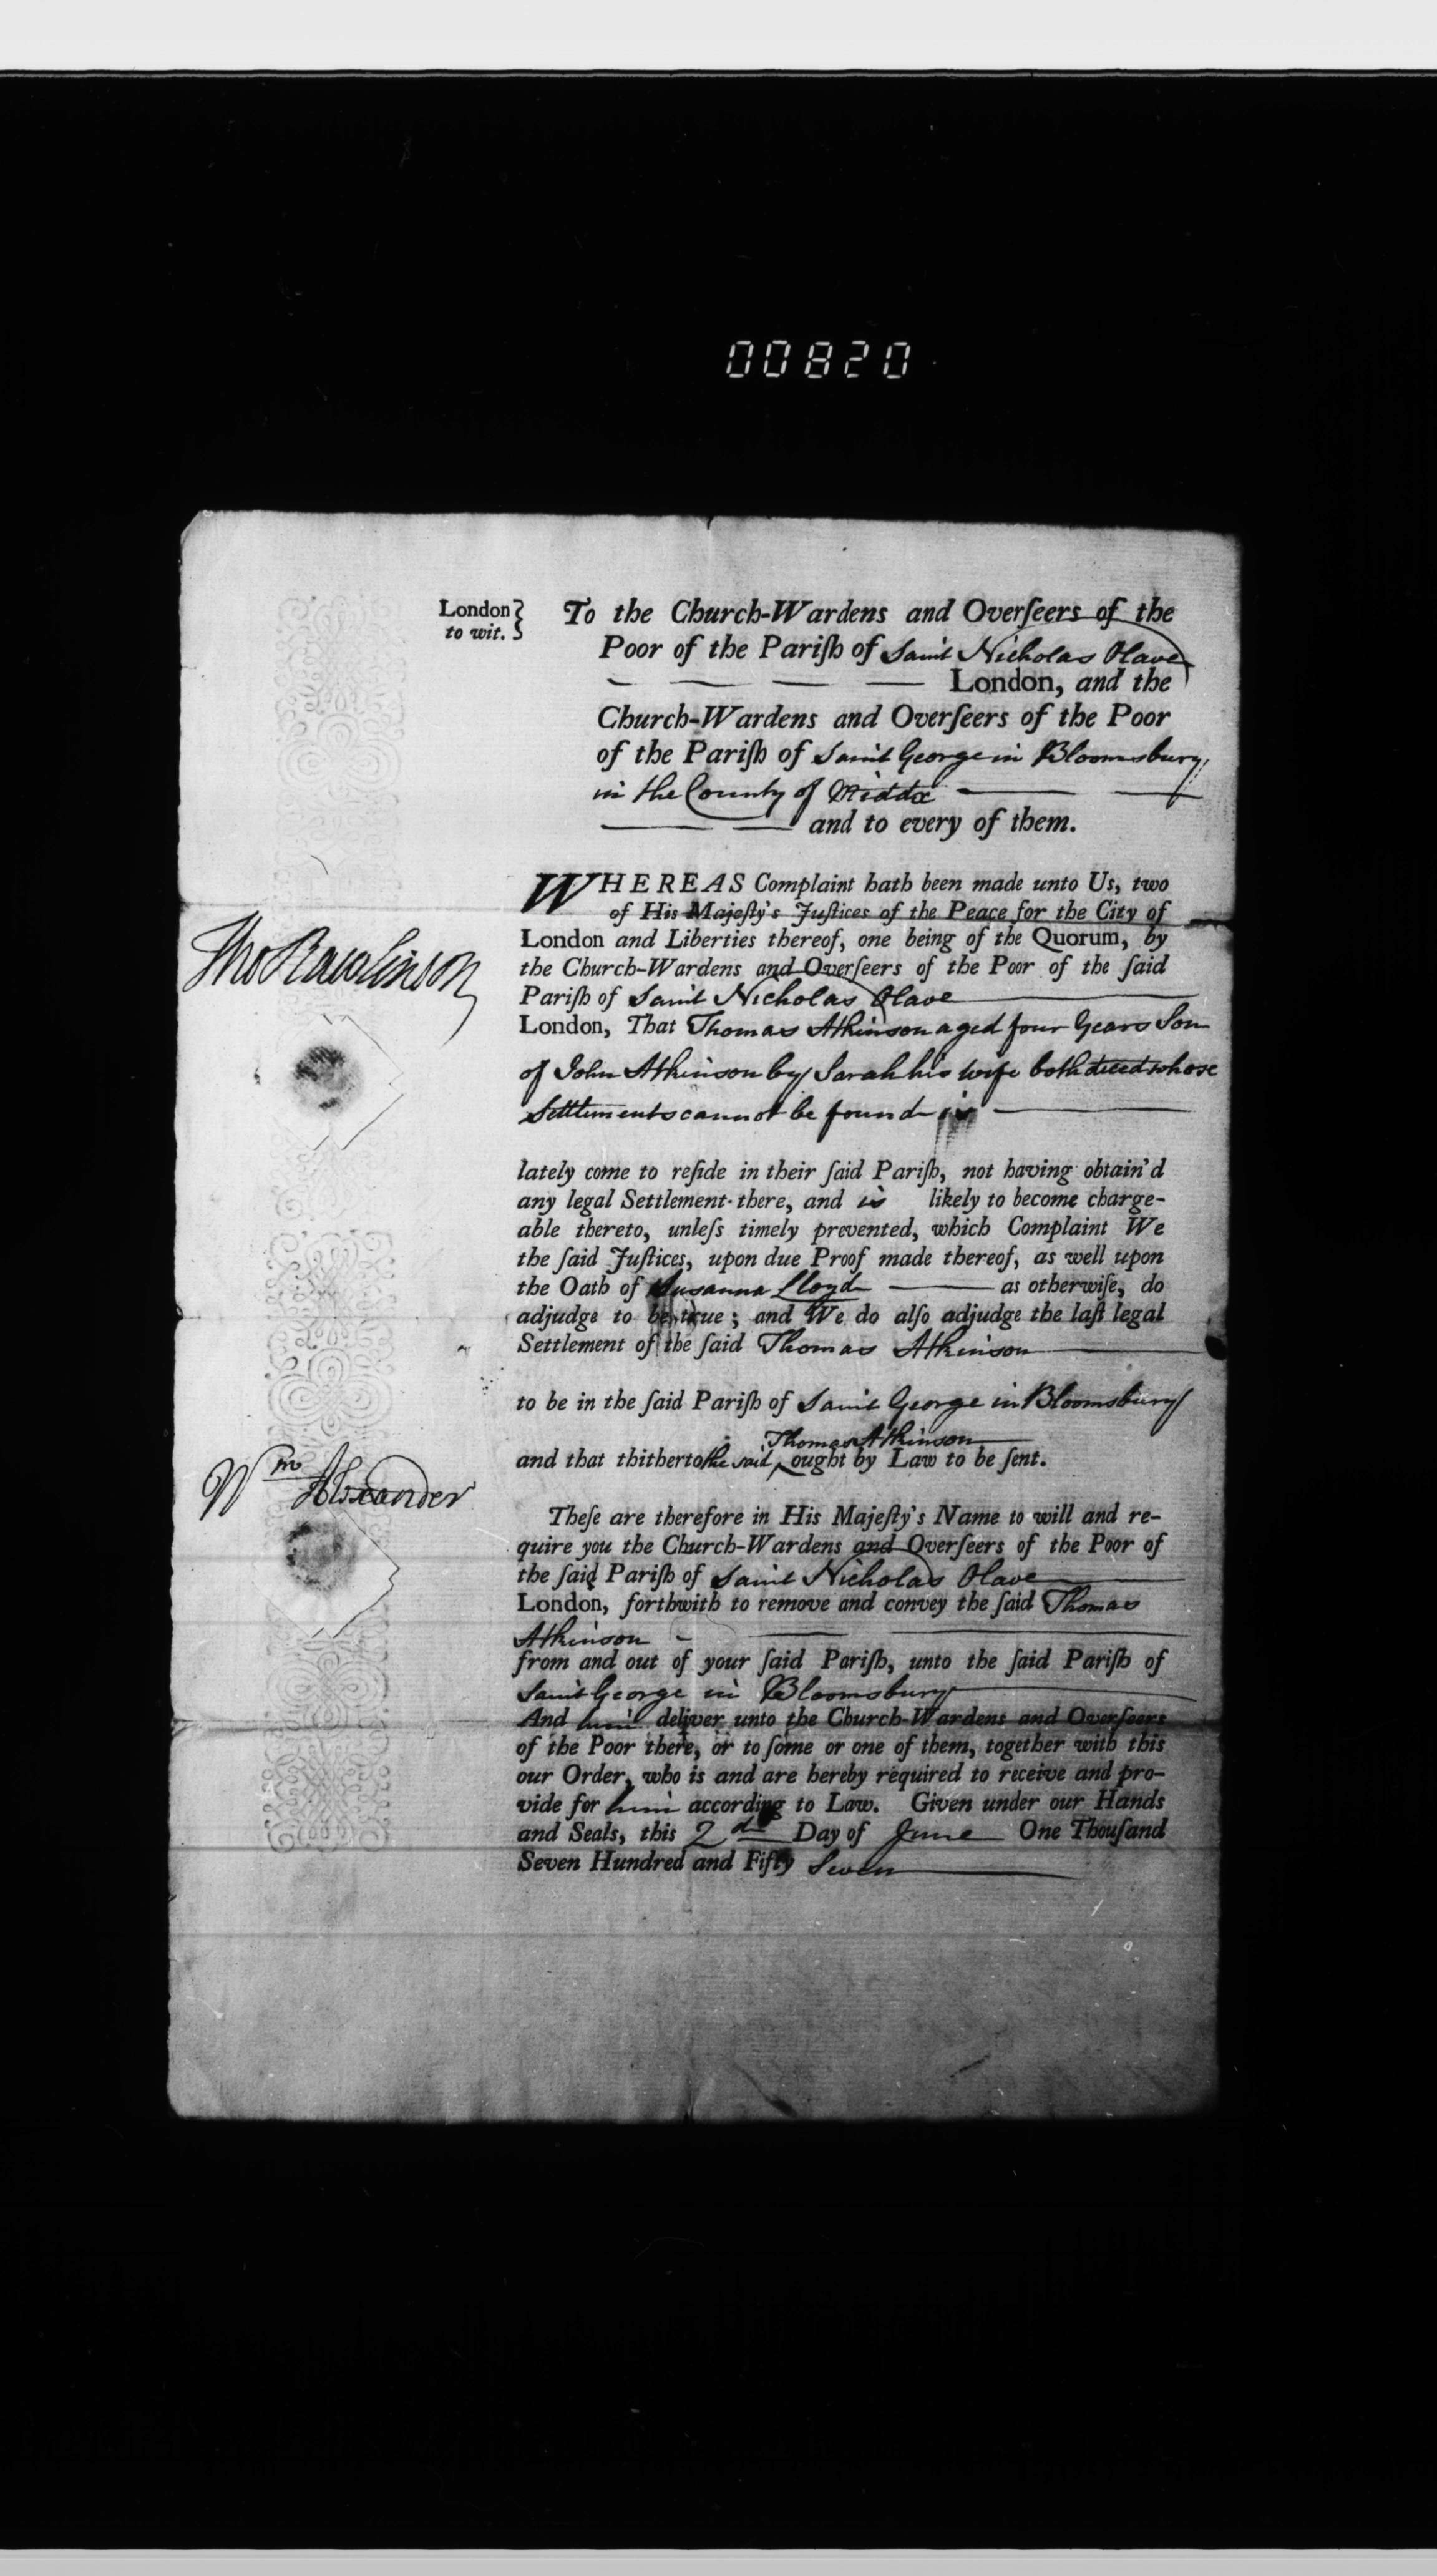 00820
London }
to wit. }
To the Church-Wardens and Overſeers of the
Poor of the Pariſh of Saint Nicholas Olave
London, and the
Church-Wardens and Overſeers of the Poor
of the Pariſh of Saint George in Bloomsbury
in the County of Middx
and to every of them.
WHEREAS Complaint hath been made unto Us, two
of His Majeſty's Juſtices of the Peace for the City of
London and Liberties thereof, one being of the Quorum, by
the Church-Wardens and Overſeers of the Poor of the ſaid
Pariſh of Saint Nicholas Olave
London, That Thomas Atkinson aged four Years Son
of John Atkinson by Sarah his wife both deced whose
Settlements cannot be found is
lately come to reſide in their ſaid Pariſh, not having obtain'd
any legal Settlement there, and is likely to become charge-
able thereto, unleſs timely prevented, which Complaint We
the ſaid Juſtices, upon due Proof made thereof, as well upon
the Oath of Susanna Lloyd as otherwiſe, do
adjudge to be true; and We do alſo adjudge the laſt legal
Settlement of the ſaid Thomas Atkinson
to be in the ſaid Pariſh of Saint George in Bloomsbury
Thomas Atkinson
and that thitherto the said ‸ ought by Law to be ſent.
Theſe are therefore in His Majeſty's Name to will and re-
quire you the Church-Wardens and Overſeers of the Poor of
the ſaid Pariſh of Saint Nicholas Olave
London, forthwith to remove and convey the ſaid Thomas
Atkinson
from and out of your ſaid Pariſh, unto the ſaid Pariſh of
Saint George in Bloomsbury
And him deliver unto the Church-Wardens and Overſeers
of the Poor there, or to ſome or one of them, together with this
our Order, who is and are hereby required to receive and pro-
vide for him according to Law. Given under our Hands
and Seals, this 2d Day of June One Thouſand
Seven Hundred and Fifty Seven
Tho Rawlinson
Wm Alexander